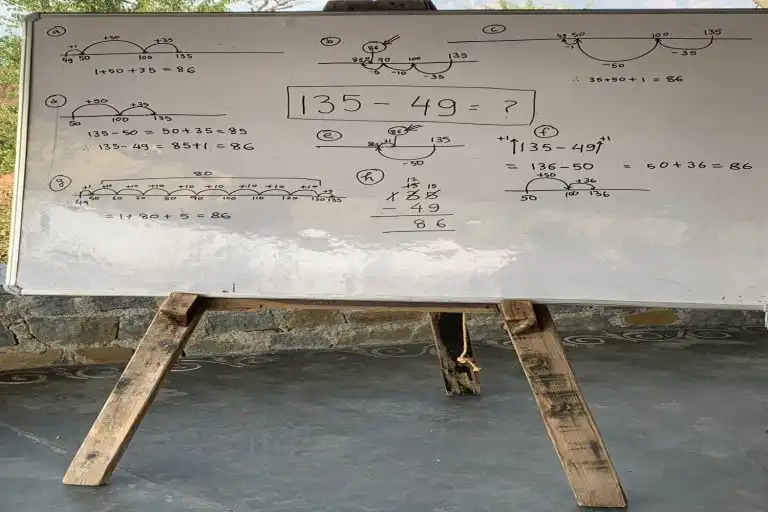 (a)
+1 +50 +35
49 50 100 135
1+50+35 = 86
(b)
86
85 90 100 135
-5 -10 -35
(c)
49 50 100 135
-1 -50 -35
∴ 35+50+1 = 86
135 - 49 = ?
(d)
+50 +35
50 100 135
135-50 = 50+35 = 85
∴ 135-49 = 85+1 = 86
(e)
86
85 +1 135
-50
(f)
+1↑135-49↑+1
= 136-50 = 50+36 = 86
+50 +36
50 100 136
(g)
80
+1 +10 +10 +10 +10 +10 +10 +10 +10 +5
49 50 60 70 80 90 100 110 120 130 135
= 1+80+5 = 86
(h)
12
13 15
1 3 5
- 4 9
8 6